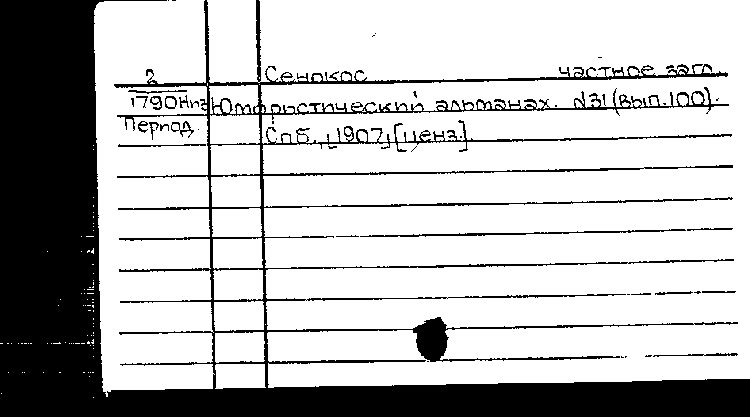 2 Сенокос частное загл.
1790Нпз Юмористический альманах. №31 (вып.100).
Период. Спб., [1907] [ценз.].